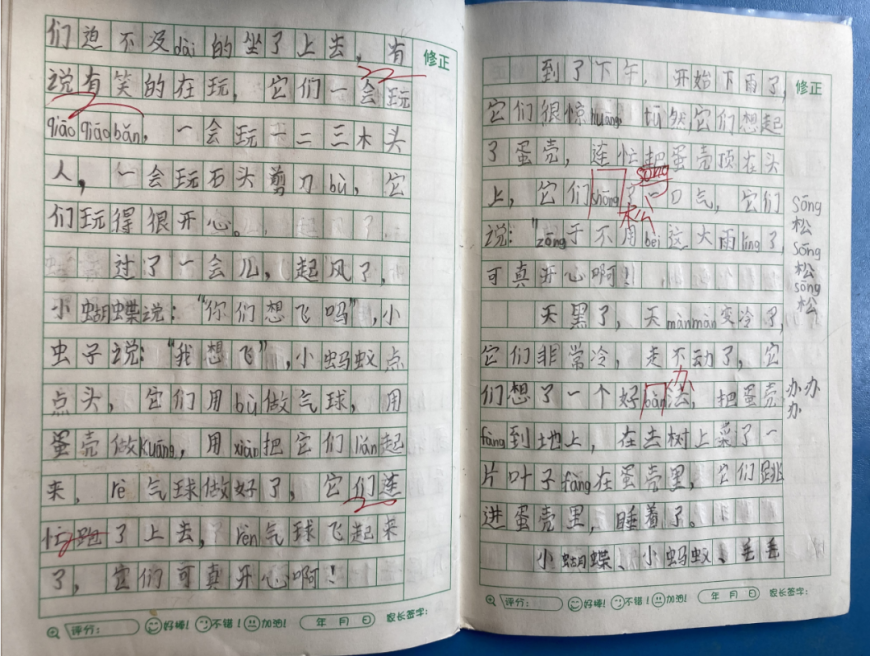 们迫不及dài的坐了上去,有
说有笑的在玩,它们一会玩
qiāoqiāobǎn,一会玩一二三木头
人,一会玩石头剪刀bù,它
们玩得很开心。
过了一会儿,起风了,
小蝴蝶说:“你们想飞吗”,小
虫子说:“我想飞”,小蚂蚁点
点头,它们用bù做气球,用
蛋壳做kuāng,用xiàn把它们lián起
来,rè气球做好了,它们连
忙跑了上去,rèn气球飞起来
了,它们可真开心啊!
评分: 好棒! 不错! 加油! 年 月 日 家长签字:
修正
到了下午,开始下雨了,
它们很惊huāng,tū然它们想起
了蛋壳,连忙把蛋壳顶在头
上,它们shōng了一口气,它们
sōng
松
说:“zōng于不用bèi这大雨lín了,
可真开心啊!
天黑了,天mànmàn变冷了,
它们非常冷,走不动了,它
们想了一个好bàn法,把蛋壳
办
fàng到地上,在去树上采了一
片叶子fàng在蛋壳里,它们跳
进蛋壳里,睡着了。
小蝴蝶、小蚂蚁、毛毛
修正
sōng
松
sōng
松
sōng
松
办办
办
评分: 好棒! 不错! 加油! 年 月 日 家长签字: